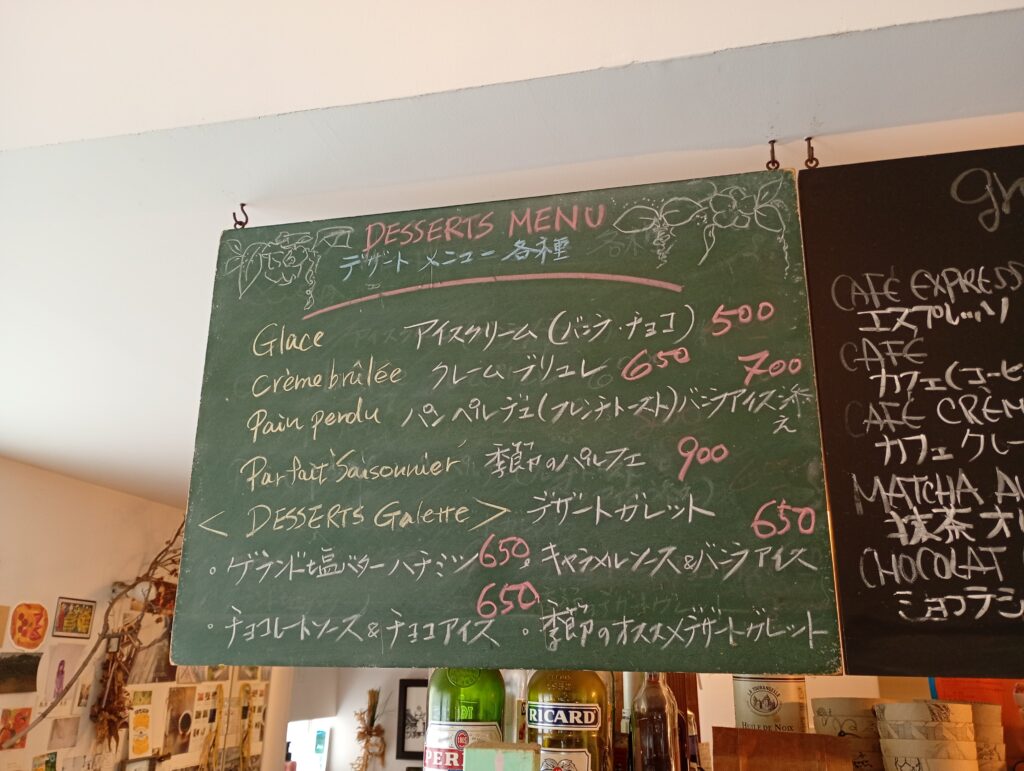 DESSERTS MENU
デザート メニュー 各種
Glace アイスクリーム (バニラ・チョコ) 500
Crème brûlée クレーム ブリュレ 650
Pain perdu パン ペルデュ (フレンチトースト) バニラアイス添え 700
Parfait Saisonnier 季節のパルフェ 900
< DESSERTS Galette > デザートガレット
・ゲランド塩バター ハチミツ 650
・キャラメルソース&バニラアイス 650
・チョコレートソース&チョコアイス 650
・季節のオススメデザートガレット
CAFÉ EXPRESS
エスプレッソ
CAFÉ
カフェ (コーヒ
CAFÉ CRÈM
カフェ クレー
MATCHA AU
抹茶 オ
CHOCOLAT
ショコラ
RICARD
LA TOURANGELLE
HUILE DE NOIX